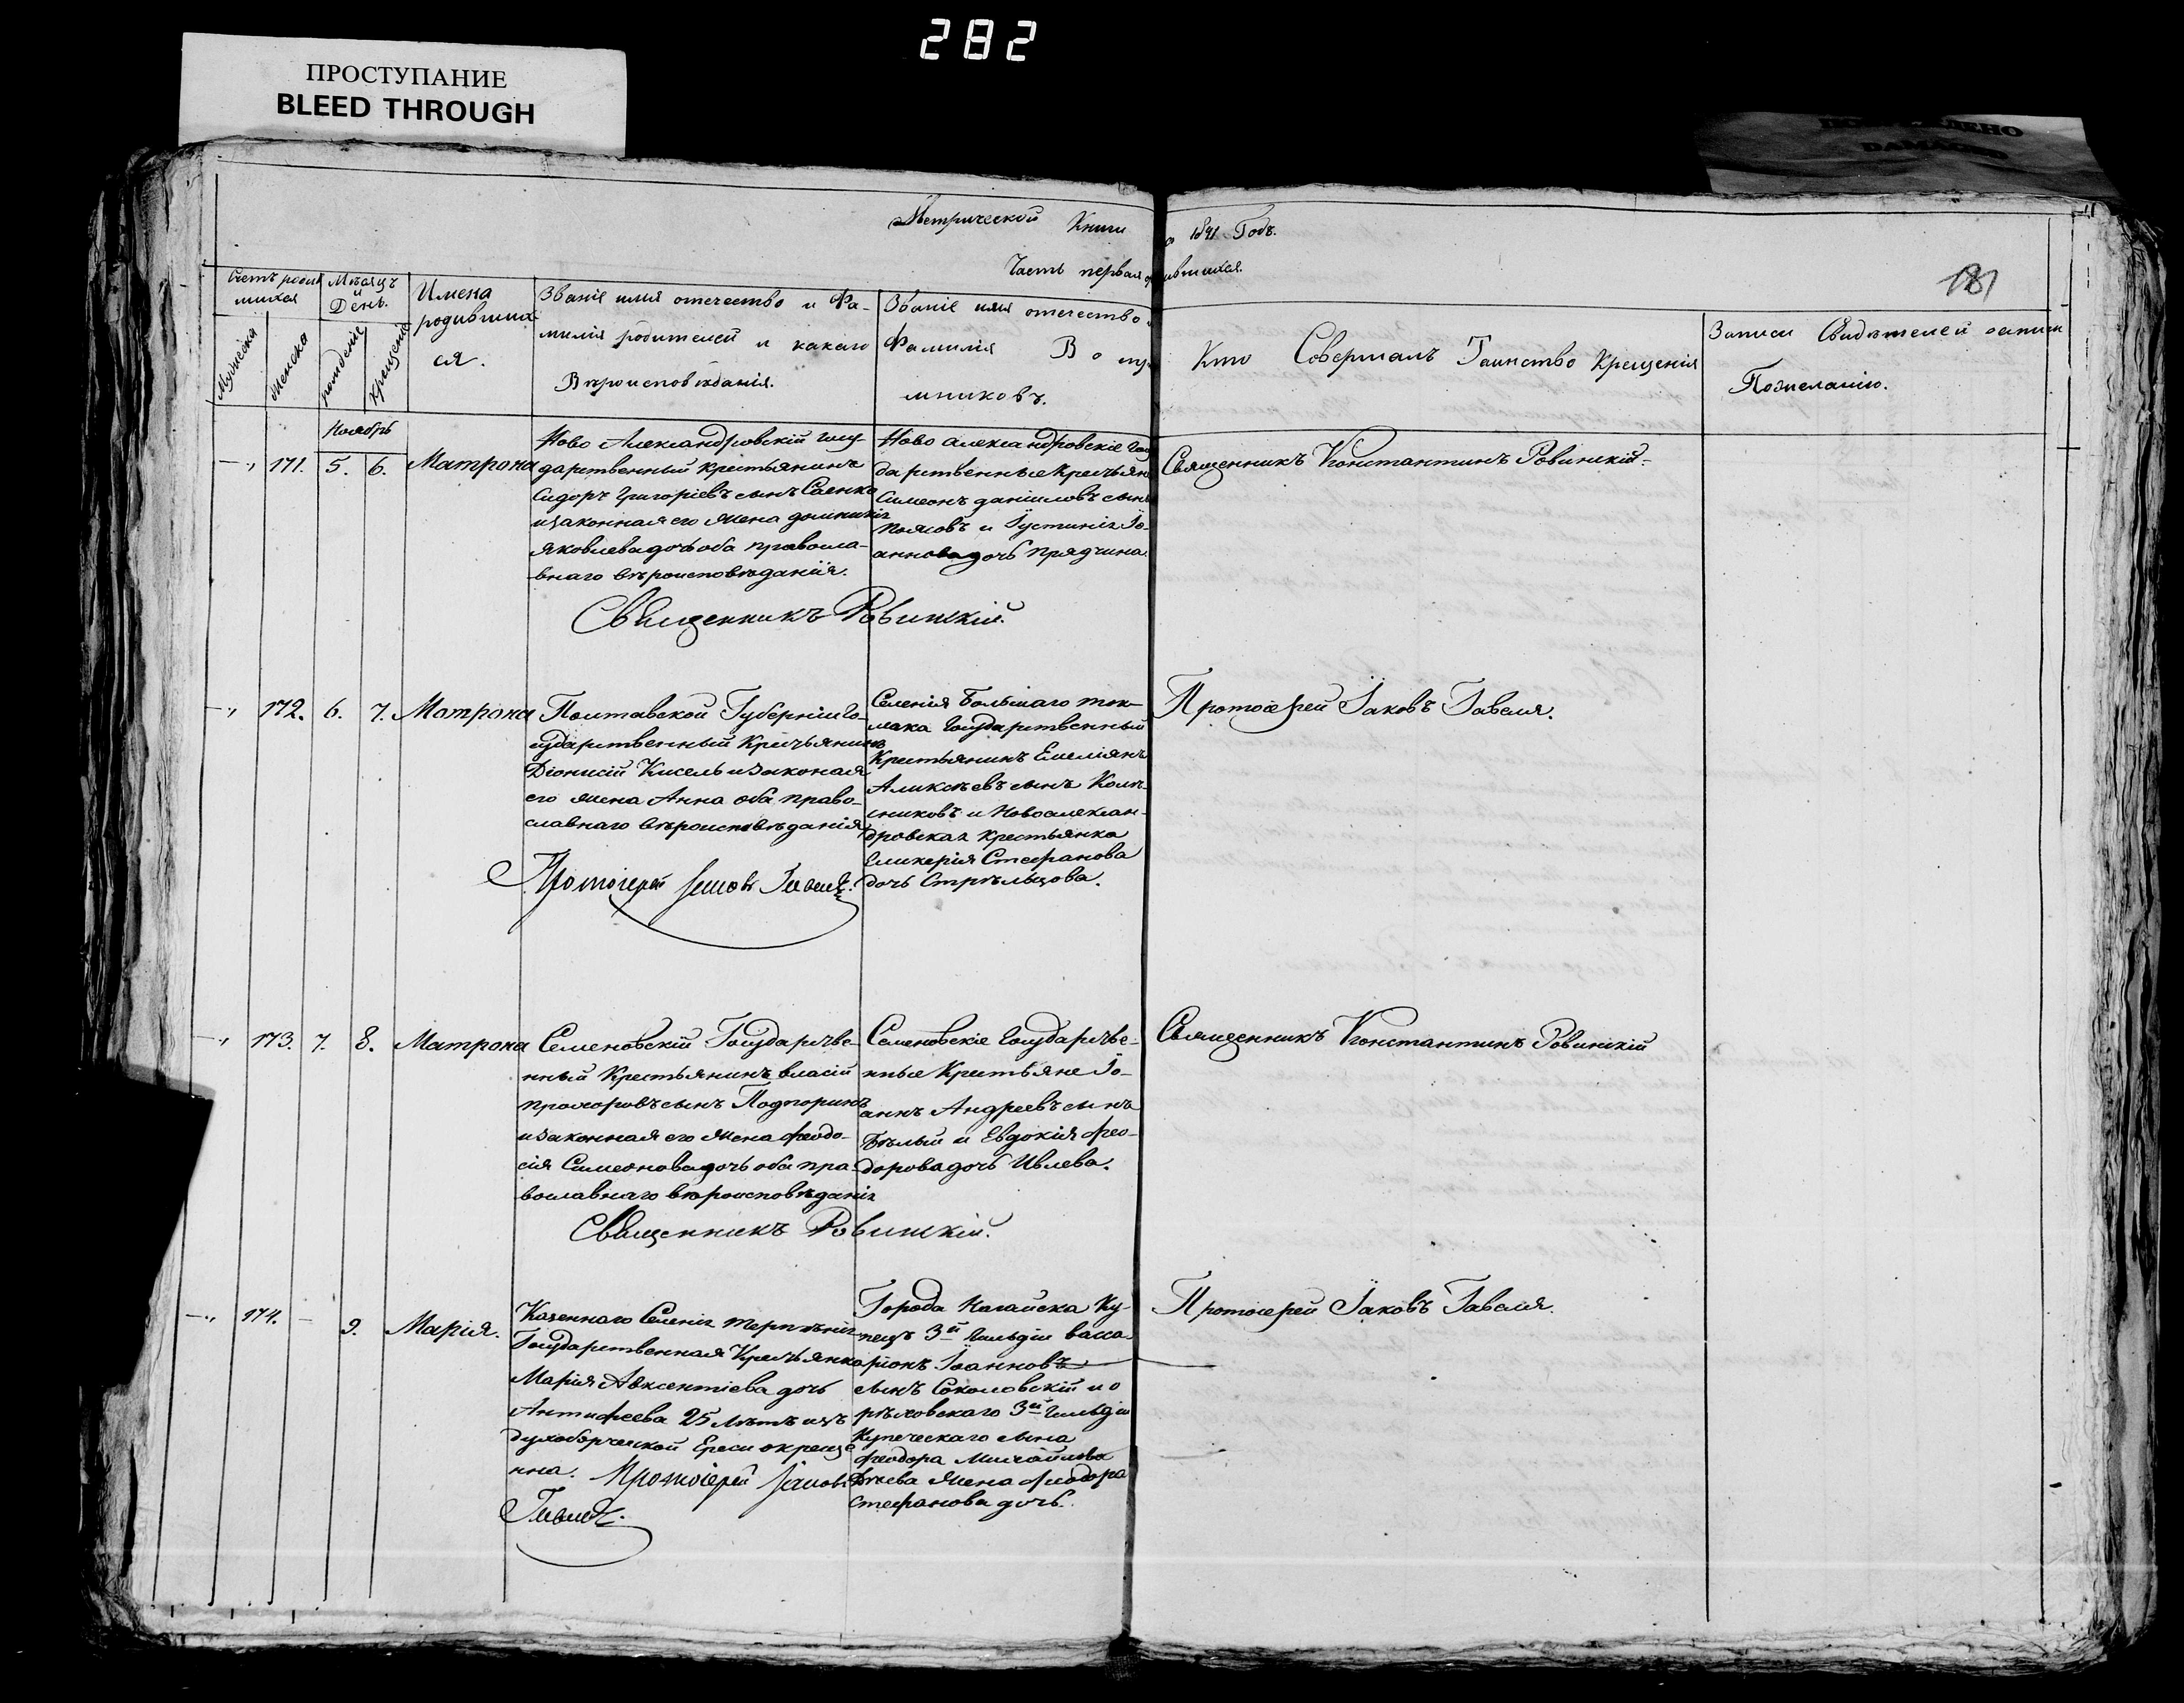 282
ПРОСТУПАНИЕ
BLEED THROUGH
Метрической Книги 1841 Годъ.
Часть первая
181
Счетъ родив
шихся
Мѣсяцъ
и
День.
Имена
родивших
ся.
Званіе имя отечество и Фа-
милія родителей и какаго
Вѣроисповѣданія.
Званіе имя отечество
Фамилія Во
мниковъ.
Кто Совершалъ Таинство Крещенія
Записи Свидѣтелей
Пожеланію.
Мужеска
Женска
рожденіе
крещенія
Ноябрь
171. 5. 6. Матрона
Ново Александровскій госу-
дарственный крестьянинъ
Сидоръ Григоріевъ сынъ Саенко
изаконная его жена
Яковлева дочь оба правосла-
внаго вѣроисповѣданія.
Ново александровскіе
дарственные
Симеонъ даніиловъ сынъ
Поповъ и Іустинія Іо-
аннова дочь Прядчина.
Священникъ Константинъ Ровинскій.
Священникъ Ровинскій.
172. 6. 7. Матрона
Полтавской Губерніи Го-
сударственный
Діонисій Кисель изаконая
его жена Анна оба право-
славнаго вѣроисповѣданія
Селенія Большаго Ток-
мака Государственный
Крестьянинъ Емеліянъ
сынъ
и Новоалексан-
дровская крестьянка
Гликерія Стефанова
дочь Стрѣльцова.
Протоіерей Іаковъ Гавеля.
Протоіерей Іаковъ
173. 7. 8. Матрона
Семеновскій Государстве-
нный Крестьянинъ власій
прохоровъ сынъ Подпоринъ
изаконная его жена феодо-
сія Симеонова дочь оба пра-
вославнаго вѣроисповѣданія
Семеновскіе Государстве-
нные Крестьяне Іо-
аннъ Андреевъ сынъ
Бѣлый и Евдокія фео-
дорова дочь Ивлева.
Священникъ Константинъ Ровинскій
Священникъ Ровинскій.
174. 9. Марія.
Казеннаго Селенія терпѣнія
Государственная Крестьянка
Марія Авксентіева дочь
Антифеева 25 лѣтъ изъ
духоборческой Ереси окреще
нна. Протоіерей Іаковъ
Города Нагайска Ку-
пецъ 3й Гильдіи висса-
ріонъ Іоанновъ
сынъ Соколовскій и о
рѣховскаго 3й Гильдіи
Купеческаго сына
феодора Михайлова
жена феодора
Стефанова дочь.
Протоіерей Іаковъ Гавеля.